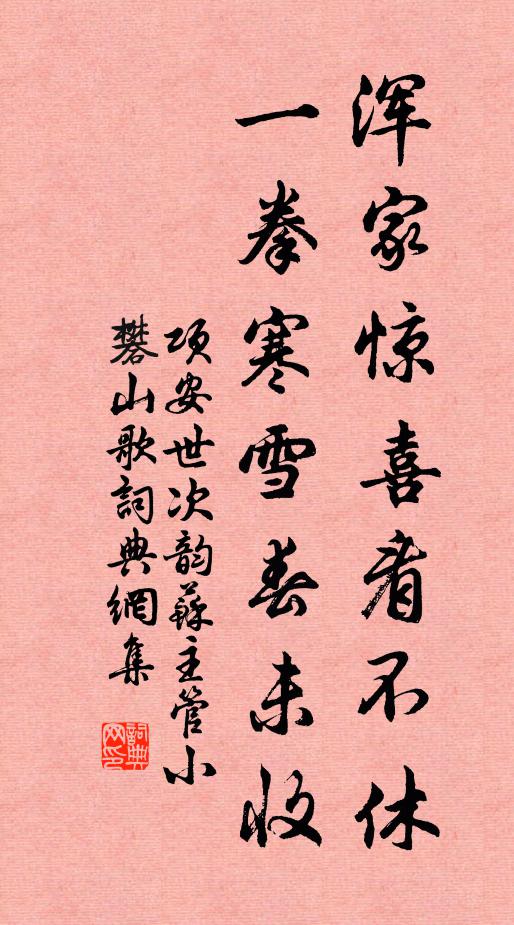 浑家惊喜看不休
一拳寒雪春未收
项安世次韵蘇主管小
礬山歌詞典網集
詞典
网印